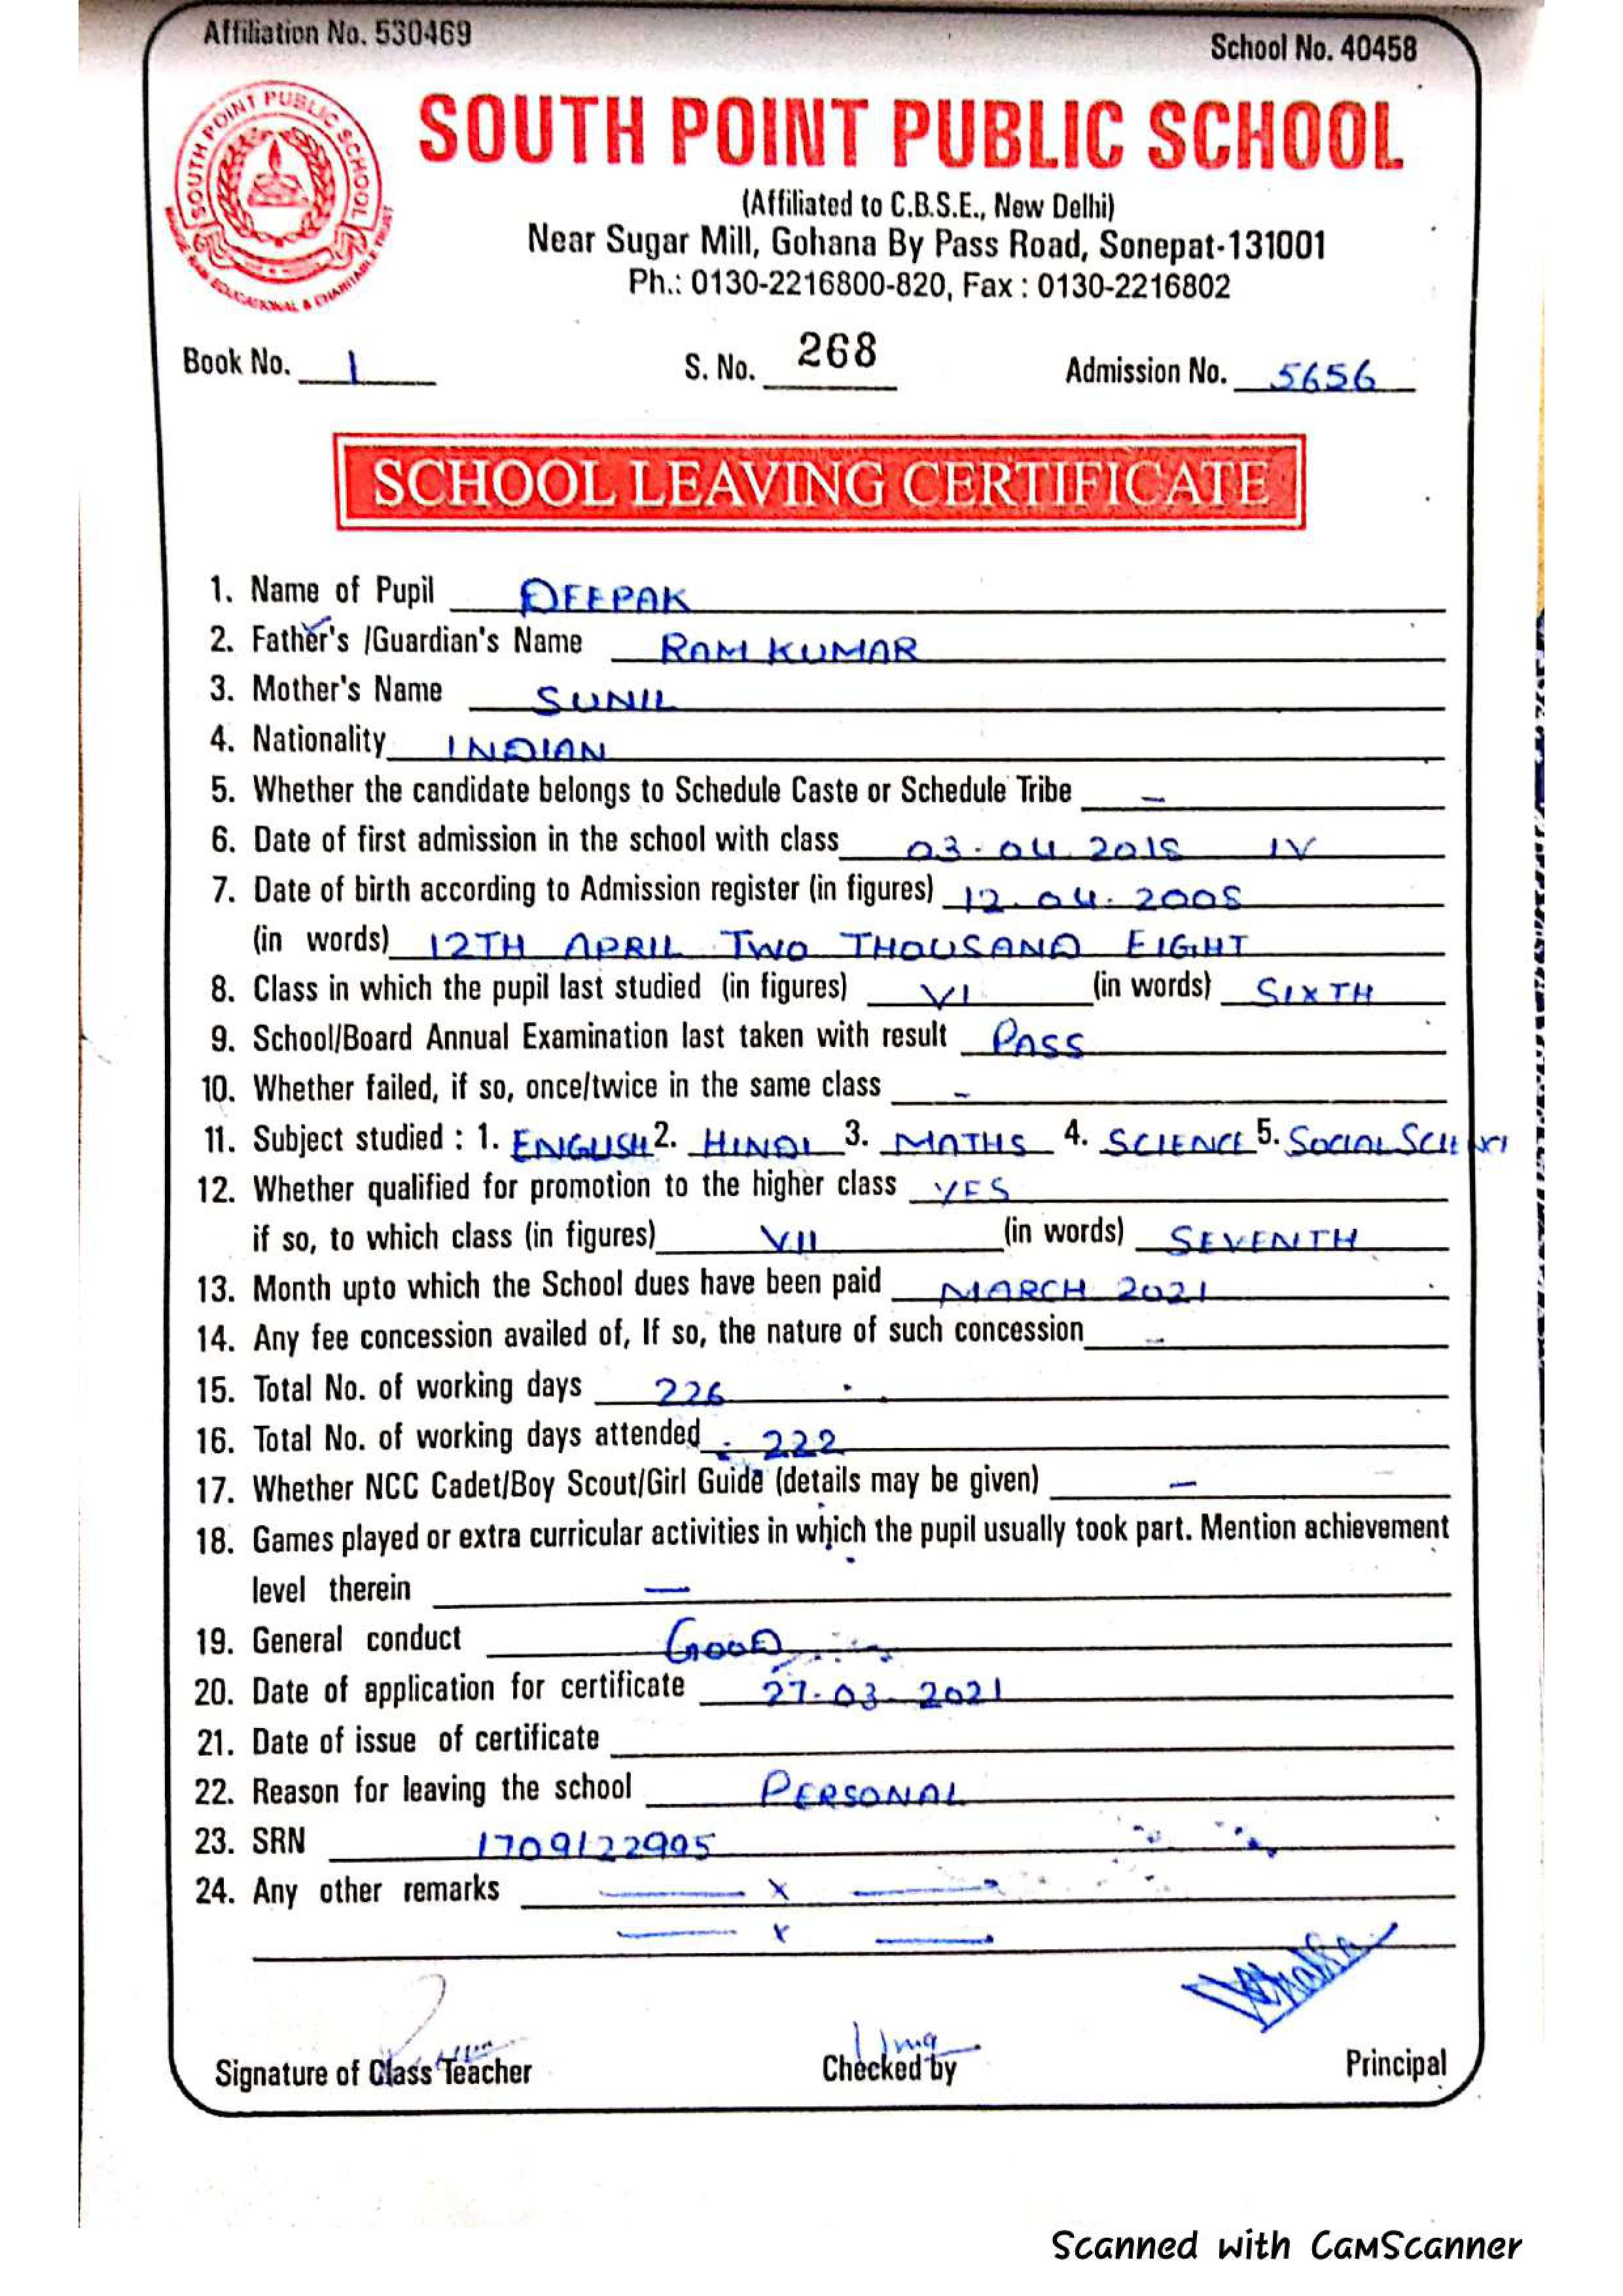 Affiliation No. 530469
School No. 40458
SOUTH POINT PUBLIC SCHOOL
SOUTH POINT PUBLIC SCHOOL
EDUCATIONAL & CHARITABLE TRUST
(Affiliated to C.B.S.E., New Delhi)
Near Sugar Mill, Gohana By Pass Road, Sonepat-131001
Ph.: 0130-2216800-820, Fax : 0130-2216802
Book No. 1 S. No. 268 Admission No. 5656
SCHOOL LEAVING CERTIFICATE
1. Name of Pupil DEEPAK
2. Father's /Guardian's Name RAM KUMAR
3. Mother's Name SUNIL
4. Nationality INDIAN
5. Whether the candidate belongs to Schedule Caste or Schedule Tribe –
6. Date of first admission in the school with class 03.04.2018 IV
7. Date of birth according to Admission register (in figures) 12.04.2008
(in words) 12TH APRIL TWO THOUSAND EIGHT
8. Class in which the pupil last studied (in figures) VI (in words) SIXTH
9. School/Board Annual Examination last taken with result PASS
10. Whether failed, if so, once/twice in the same class –
11. Subject studied : 1. ENGLISH 2. HINDI 3. MATHS 4. SCIENCE 5. SOCIAL
12. Whether qualified for promotion to the higher class YES
if so, to which class (in figures) VII (in words) SEVENTH
13. Month upto which the School dues have been paid MARCH 2021
14. Any fee concession availed of, If so, the nature of such concession –
15. Total No. of working days 226
16. Total No. of working days attended 222
17. Whether NCC Cadet/Boy Scout/Girl Guide (details may be given) –
18. Games played or extra curricular activities in which the pupil usually took part. Mention achievement
level therein –
19. General conduct GOOD
20. Date of application for certificate 27.03.2021
21. Date of issue of certificate
22. Reason for leaving the school PERSONAL
23. SRN 1709122905
24. Any other remarks — x —
— x —
Signature of Class Teacher Checked by Principal
Scanned with CamScanner